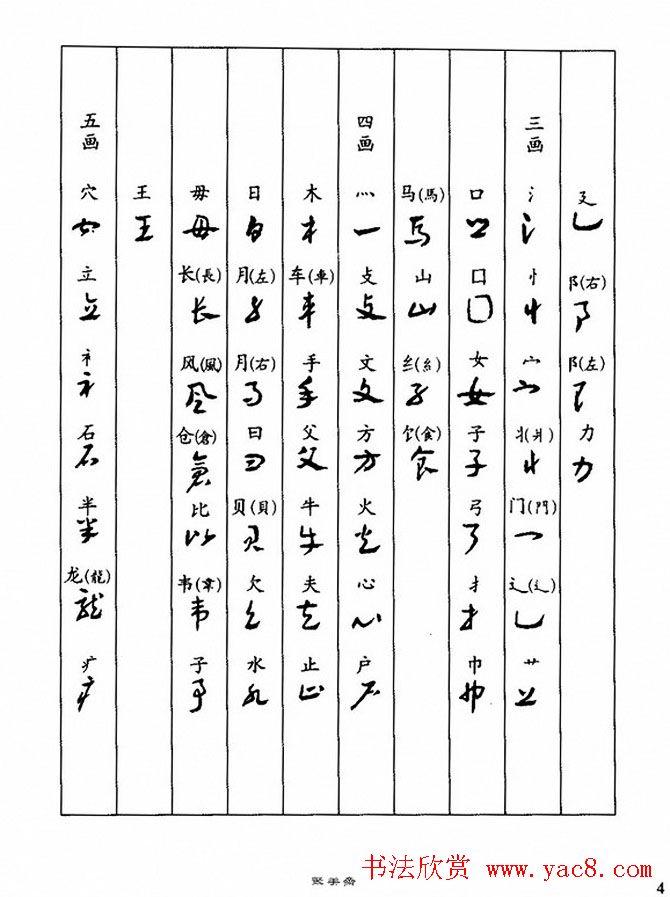 廴 阝(右) 阝(左) 力
三画 氵 忄 宀 丬(爿) 门(門) 辶(辶) 艹
口 囗 女 子 弓 扌 巾
马(馬) 山 纟(糹) 饣(食)
四画 灬 攴 文 方 火 心 户
木 车(車) 手 父 牛 夫 止
日 月(左) 月(右) 曰 贝(貝) 欠 水
毋 长(長) 风(風) 仓(倉) 比 韦(韋) 子
王
五画 穴 立 礻 石 半 龙(龍) 疒
书法欣赏 www.yac8.com
4